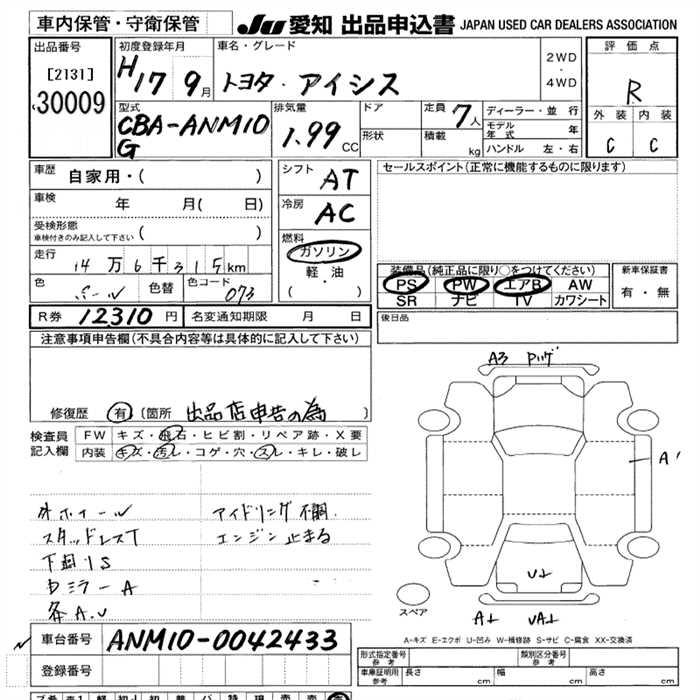 車内保管・守衛保管 JU 愛知 出品申込書 JAPAN USED CAR DEALERS ASSOCIATION
出品番号 初度登録年月 車名・グレード 評価点
[2131] H17 9月 トヨタ・アイシス 2WD・4WD R
30009 外装 内装
型式 排気量 ドア 定員 7人 ディーラー・並行
CBA-ANM10 1.99CC 形状 積載 kg モデル年式 年 C C
G ハンドル 左・右
車歴 自家用・( ) シフト AT セールスポイント(正常に機能するものに限ります)
車検 年 月( 日) 冷房 AC
受検形態 ( )
車検付きのみ記入して下さい
燃料 ガソリン
走行 14万6千315km 軽・油 装備品(純正品に限り○をつけてください) 新車保証書
色 パール 色替 色コード 073 ( ・ ) PS PW エアB AW 有・無
SR ナビ TV カワシート
R券 12310円 名変通知期限 月 日 後日品
注意事項申告欄(不具合内容等は具体的に記入して下さい)
A3
修復歴 有 [箇所 出品店申告の為 ]
検査員記入欄 FW キズ・飛石・ヒビ割・リペア跡・X要
内装 キズ・汚レ・コゲ・穴・スレ・キレ・破レ
A'
外ホイール アイドリング不調
スタッドレスT エンジン止まる
下廻りS
ミラーA
A.U
U↓
スペア
A↓ UA↓
A-キズ E-エクボ U-凹み W-補修跡 S-サビ C-腐食 XX-交換済
車台番号 ANM10-0042433
登録番号
形式指定番号 参考 類別区分番号 参考
車庫証明用 参考 長さ cm 幅 cm 高さ cm